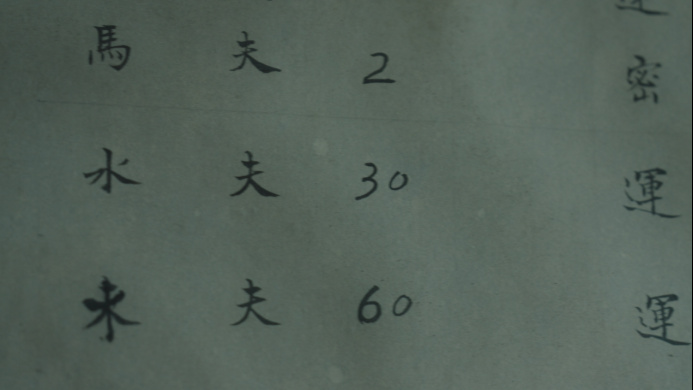 馬 夫 2 密
水 夫 30 運
夫 60 運